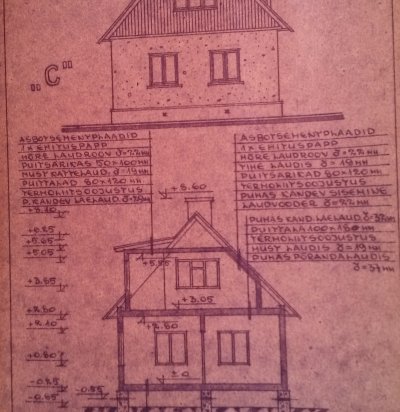 "C"
ASBOTSEMENTPLAADID
1× EHITUSPAPP
HÕRE LAUDROOV δ=22мм
PUITSARIKAS 50×100мм
MUST KATTELAUD δ=19мм
PUITTALAD 50×120мм
TERMOHITSOOJUSTUS
P. KANDEV LAELAUD δ=25мм
ASBOTSEMENTPLAADID
1× EHITUSPAPP
HÕRE LAUDROOV δ=22мм
TIHE LAUDIS δ=19мм
PUITSARIKAD 50×120мм
TERMOHITSOOJUSTUS
PUHAS KANDEV SISEMINE
LAUDVOODER δ=22мм
PUHAS KAND. LAELAUD. δ=32мм
PUITTALA 100×180мм
TERMOHITSOOJUSTUS
MUST LAUDIS δ=19мм
PUHAS PÕRANDALAUDIS
δ=37мм
+8.60
+6.25
+5.65
+5.05
+3.65
+2.80
+2.10
+0.80
-0.25
-0.65
-0.55
+5.55
+3.05
+2.80
±0